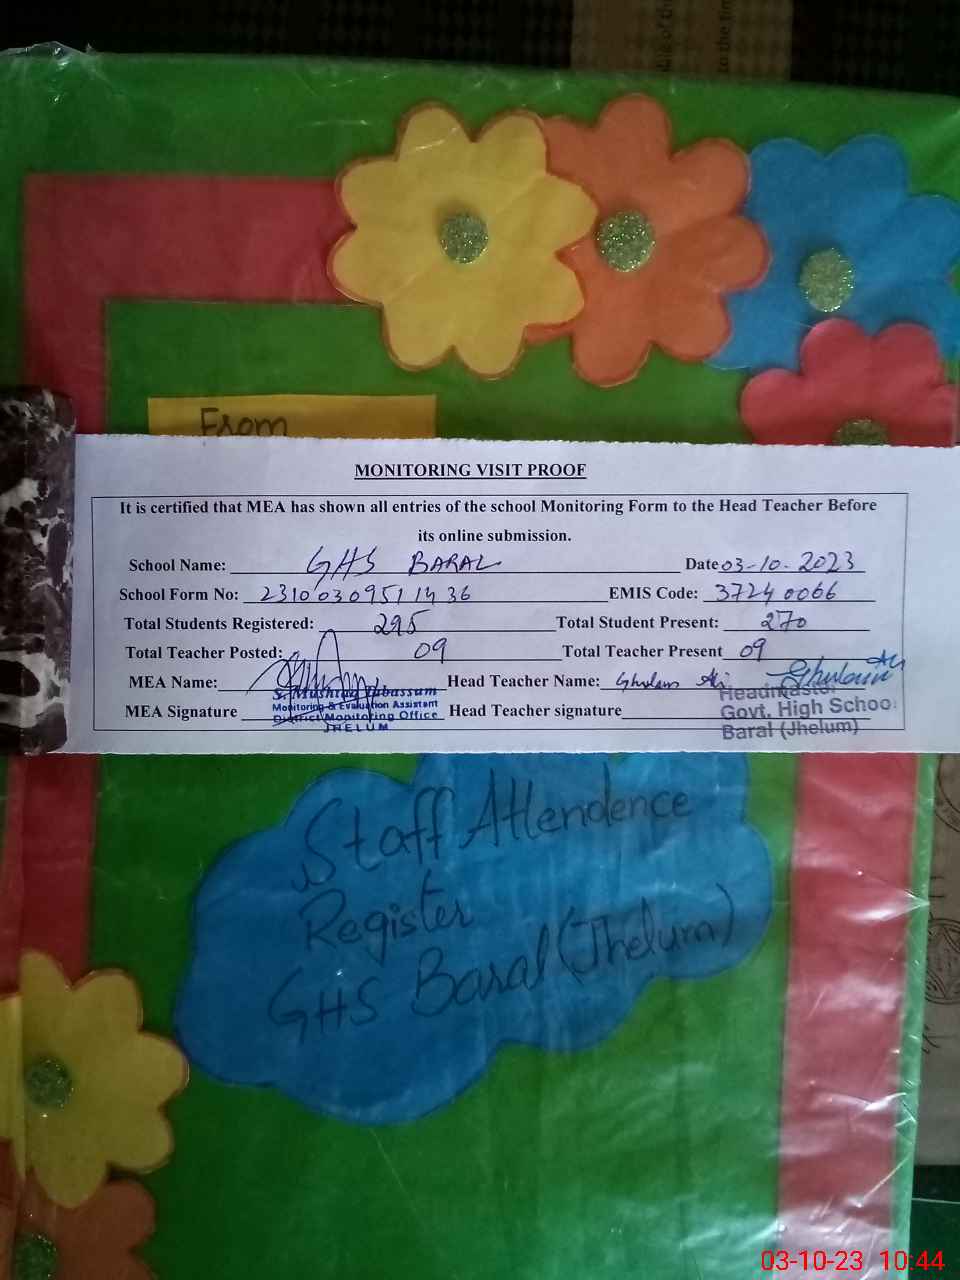 From
MONITORING VISIT PROOF
It is certified that MEA has shown all entries of the school Monitoring Form to the Head Teacher Before
its online submission.
School Name: GHS BARAL Date 03-10-2023
School Form No: 23100309511436 EMIS Code: 37240066
Total Students Registered: 295 Total Student Present: 270
Total Teacher Posted: 09 Total Teacher Present 09
MEA Name: Head Teacher Name: Ghulam Ali
S. Mushtaq Tabassum
Monitoring & Evaluation Assistant
District Monitoring Office
JHELUM
MEA Signature Head Teacher signature
Headmaster
Govt. High School
Baral (Jhelum)
Staff Attendence
Register
GHS Baral (Jhelum)
03-10-23 10:44